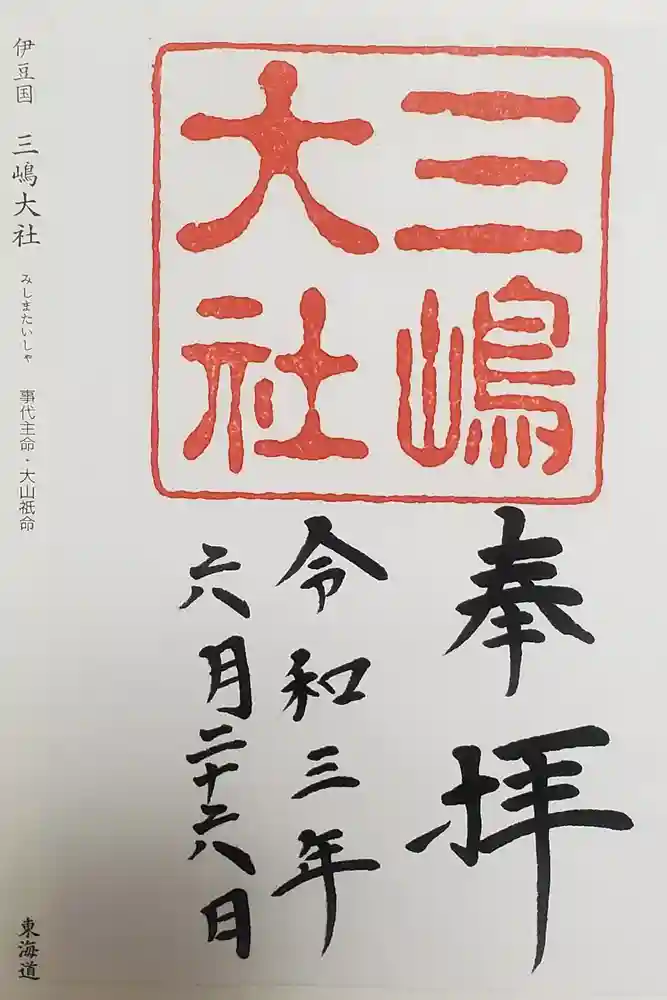 三嶋
大社
奉拝
令和三年
六月二十六日
伊豆国 三嶋大社 みしまたいしゃ 事代主命・大山祇命
東海道